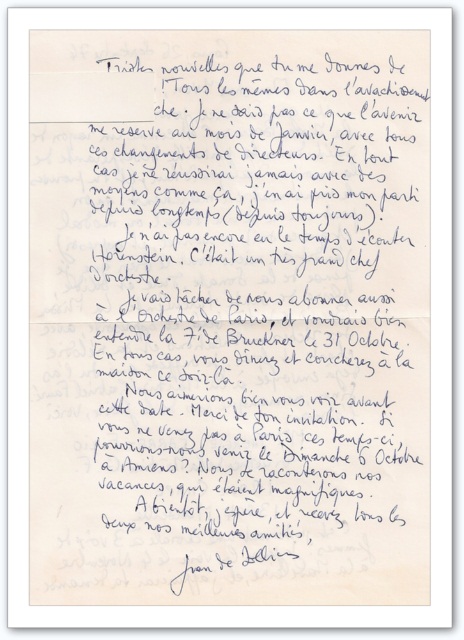 Tristes nouvelles que tu me donnes de
! Tous les mêmes dans l'avachissement
che. Je ne sais pas ce que l'avenir
me reserve au mois de Janvier, avec tous
ces changements de directeurs. En tout
cas je ne réussirai jamais avec des
moyens comme ça, j'en ai pris mon parti
depuis longtemps (depuis toujours).
Je n'ai pas encore eu le temps d'écouter
Horenstein. C'était un très grand chef
d'orchestre.
Je vais tâcher de nous abonner aussi
à l'Orchestre de Paris, et voudrais bien
entendre la 7e de Bruckner le 31 Octobre.
En tous cas, vous dînerez et coucherez à la
maison ce soir-là.
Nous aimerions bien vous voir avant
cette date. Merci de ton invitation. Si
vous ne venez pas à Paris ces temps-ci,
pourrions-nous venir le Dimanche 6 Octobre
à Amiens? Nous te raconterons nos
vacances, qui étaient magnifiques.
A bientôt, j'espère, et recevez tous les
deux nos meilleures amitiés,
Jean de Solliers